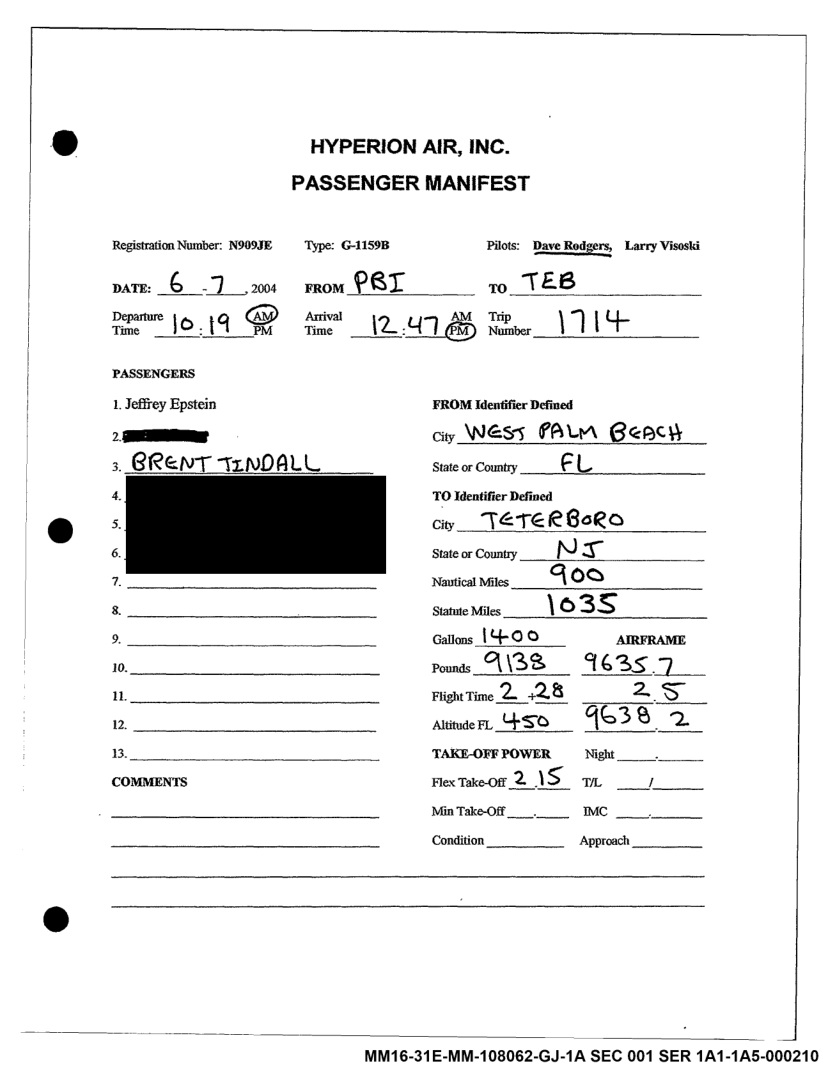 HYPERION AIR, INC.
PASSENGER MANIFEST
Registration Number: N909JE Type: G-1159B Pilots: Dave Rodgers, Larry Visoski
DATE: 6 - 7, 2004 FROM PBI TO TEB
Departure Time 10:19 AM PM Arrival Time 12:47 AM PM Trip Number 1714
PASSENGERS
1. Jeffrey Epstein FROM Identifier Defined
2. City WEST PALM BEACH
3. BRENT TINDALL State or Country FL
4. TO Identifier Defined
5. City TETERBORO
6. State or Country NJ
7. Nautical Miles 900
8. Statute Miles 1035
9. Gallons 1400 AIRFRAME
10. Pounds 9138 9635.7
11. Flight Time 2 +28 2.5
12. Altitude FL 450 9638.2
13. TAKE-OFF POWER Night
COMMENTS Flex Take-Off 2.15 T/L /
Min Take-Off IMC
Condition Approach
MM16-31E-MM-108062-GJ-1A SEC 001 SER 1A1-1A5-000210